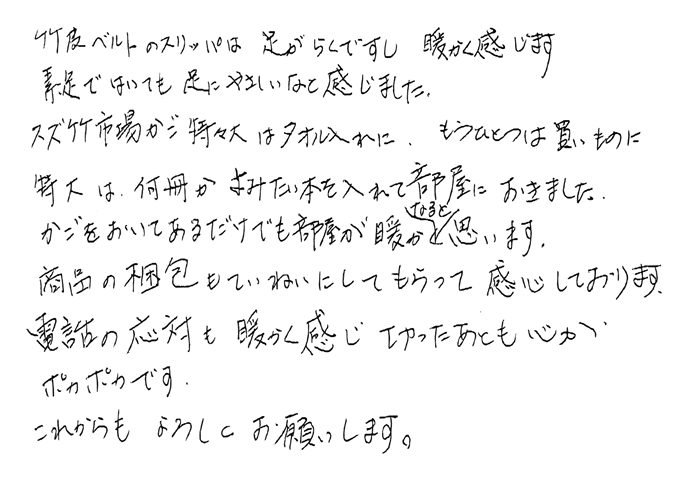 竹皮ベルトのスリッパは 足がらくですし 暖かく感じます
素足ではいても 足にやさしいなと感じました.
スズ竹市場かご特々大はタオル入れに、もうひとつは買いものに
特大は、何冊かよみたい本を入れて部屋におきました.
かごをおいてあるだけでも部屋が暖かくなると思います.
商品の梱包もていねいにしてもらって 感心しております.
電話の応対も 暖かく感じ 切ったあとも 心が
ポカポカです.
これからも よろしく お願いします。